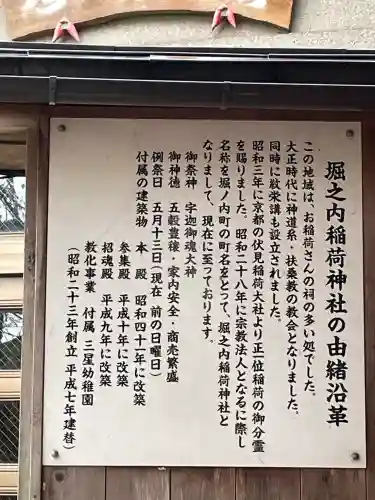 堀之内稲荷神社の由緒沿革
この地域は、お稲荷さんの祠の多い処でした。
大正時代に神道系・扶桑教の教会となりました。
同時に敬栄講も設立されました。
昭和三年に京都の伏見稲荷大社より正一位稲荷の御分霊
を賜りました。昭和二十八年に宗教法人となるに際し
名称を堀ノ内町の町名をとって、堀之内稲荷神社と
なりまして、現在に至っております。
御祭神 宇迦御魂大神
御神徳 五穀豊穣・家内安全・商売繁盛
例祭日 五月十三日(現在 前の日曜日)
付属の建築物 本 殿 昭和四十二年に改築
参集殿 平成十年に改築
招魂殿 平成九年に改築
教化事業 付属 三星幼稚園
(昭和二十三年創立 平成七年建替)